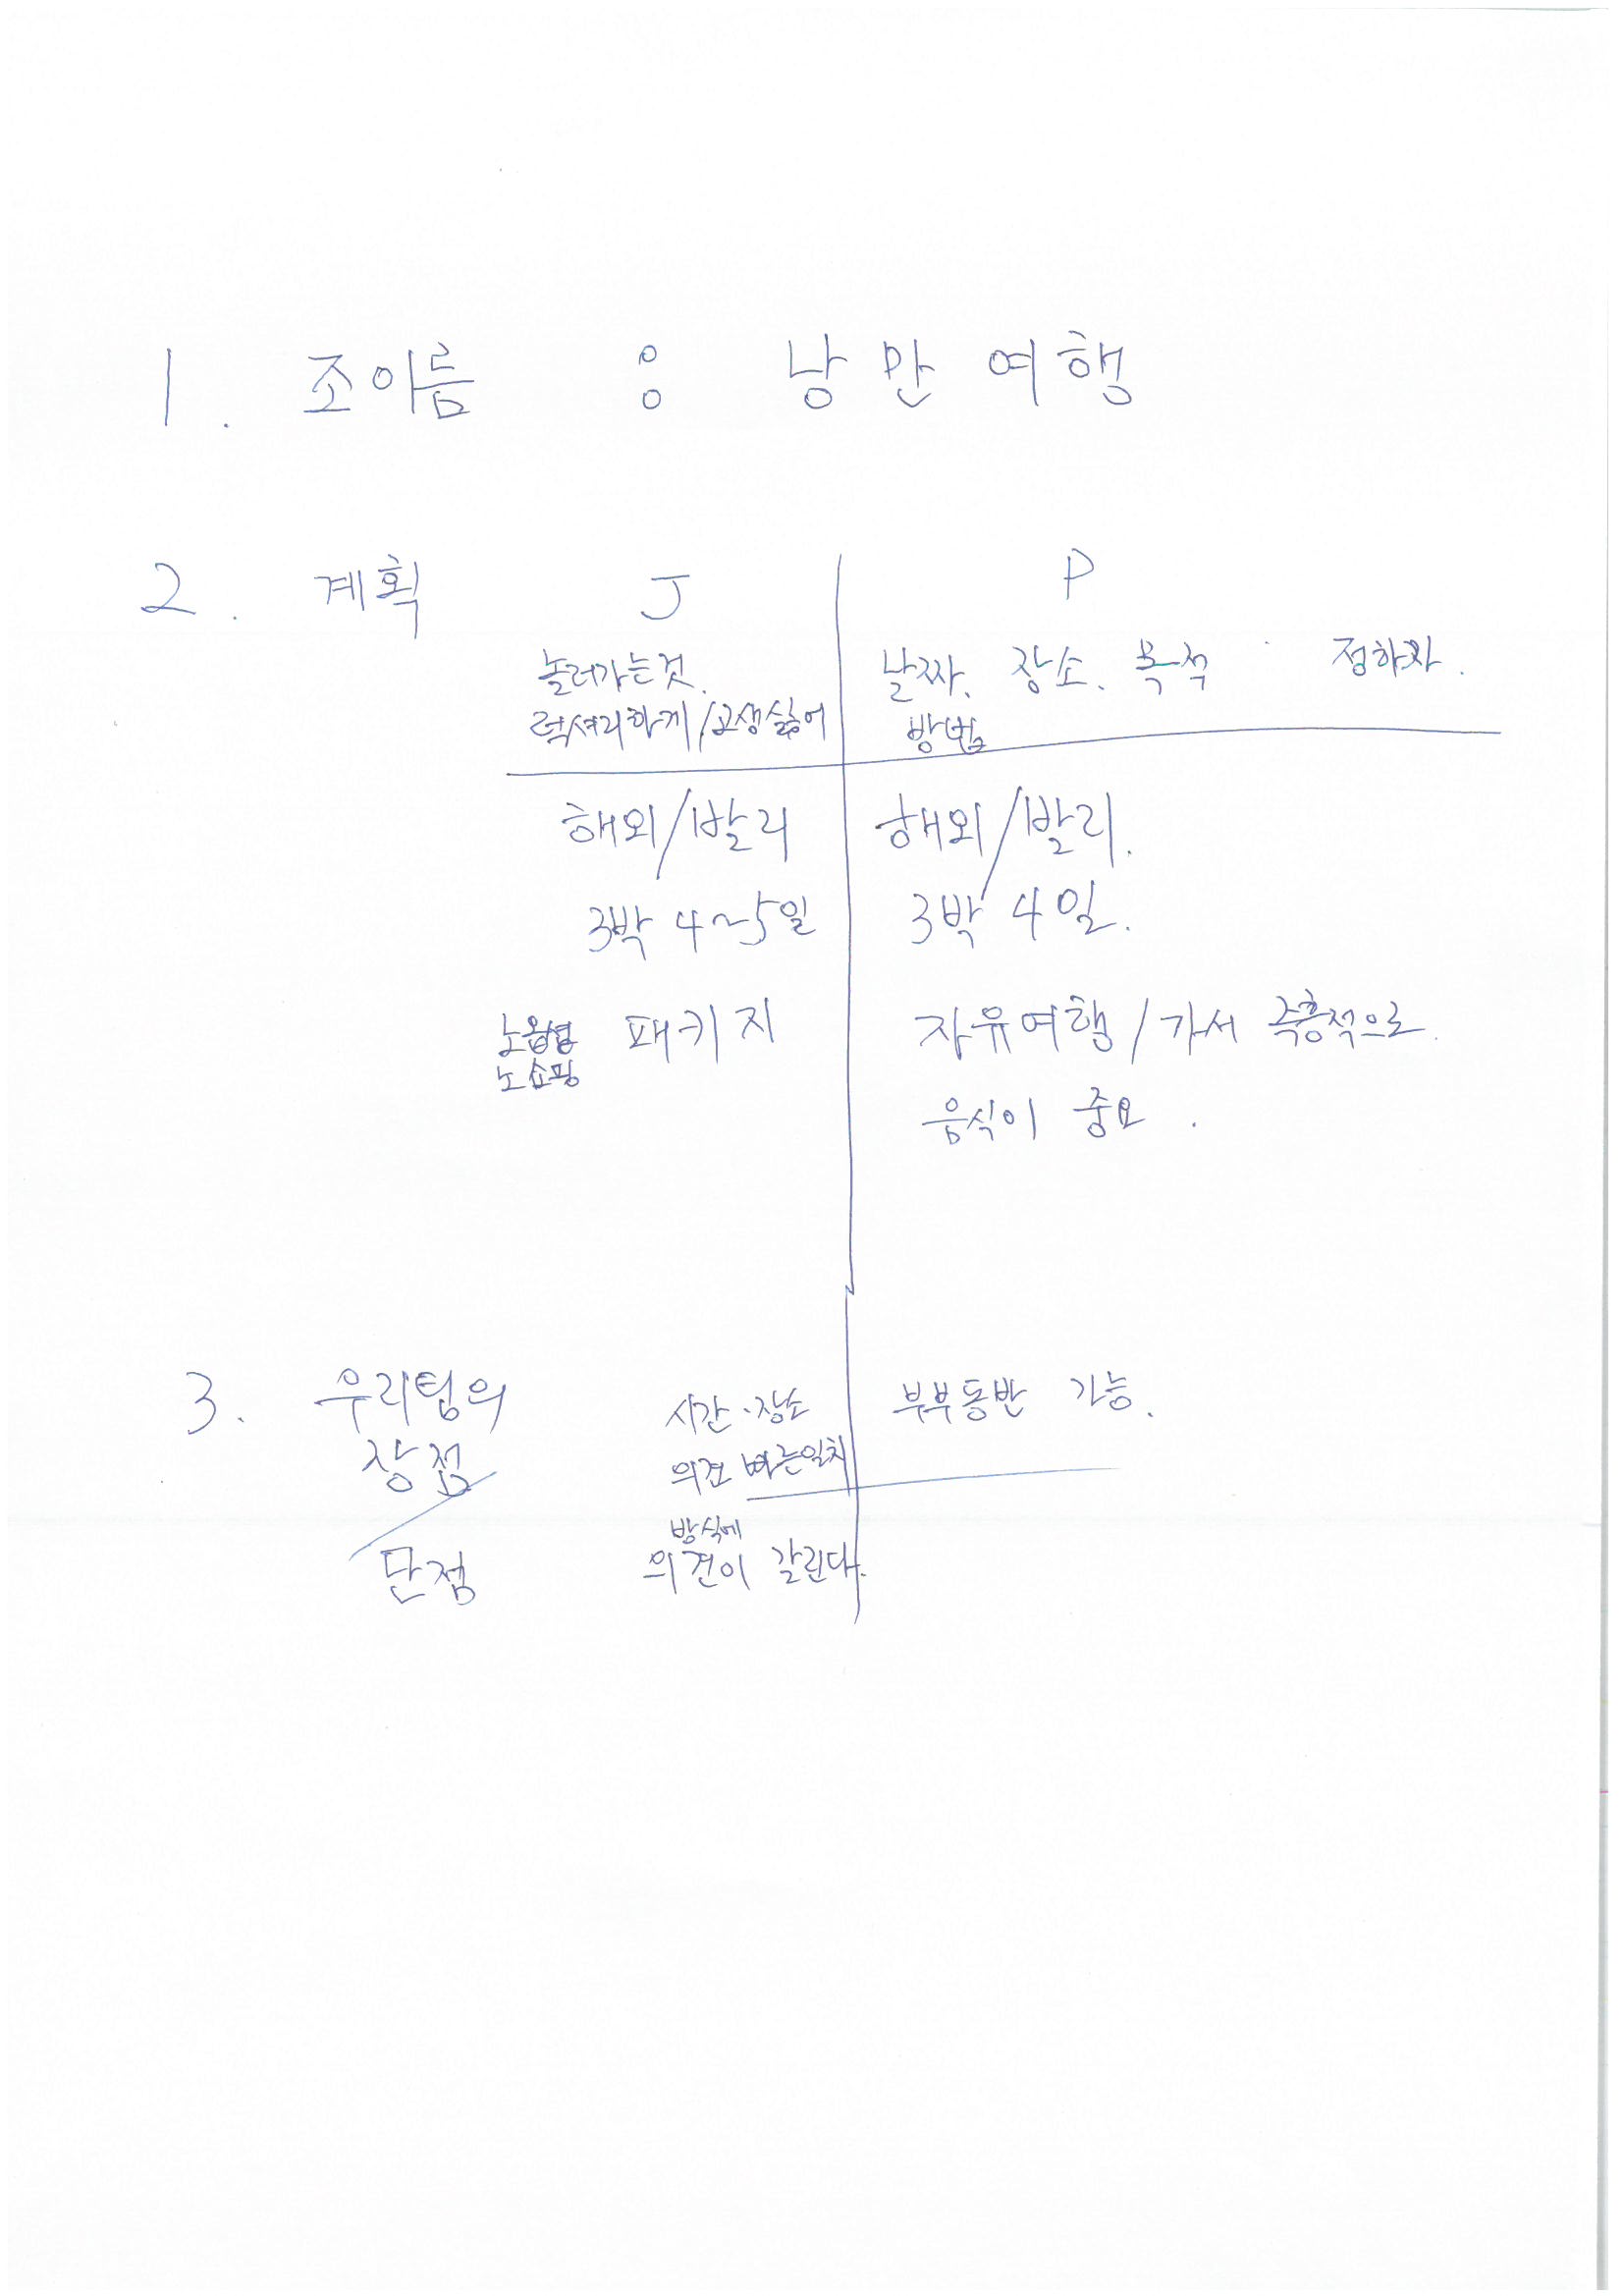 1. 조이름 : 낭만여행
2. 계획 J P
놀러가는것.
럭셔리하게/고생싫어
날짜. 장소. 목적 정하자.
방법
해외/발리 해외/발리.
3박 4~5일 3박 4일.
노옵션 패키지
노쇼핑
자유여행/가서 즉흥적으로.
음식이 중요.
3. 우리팀의
장점
/
단점
시간·장소
의견 빠른일치
부부동반 가능.
방식에
의견이 갈린다.